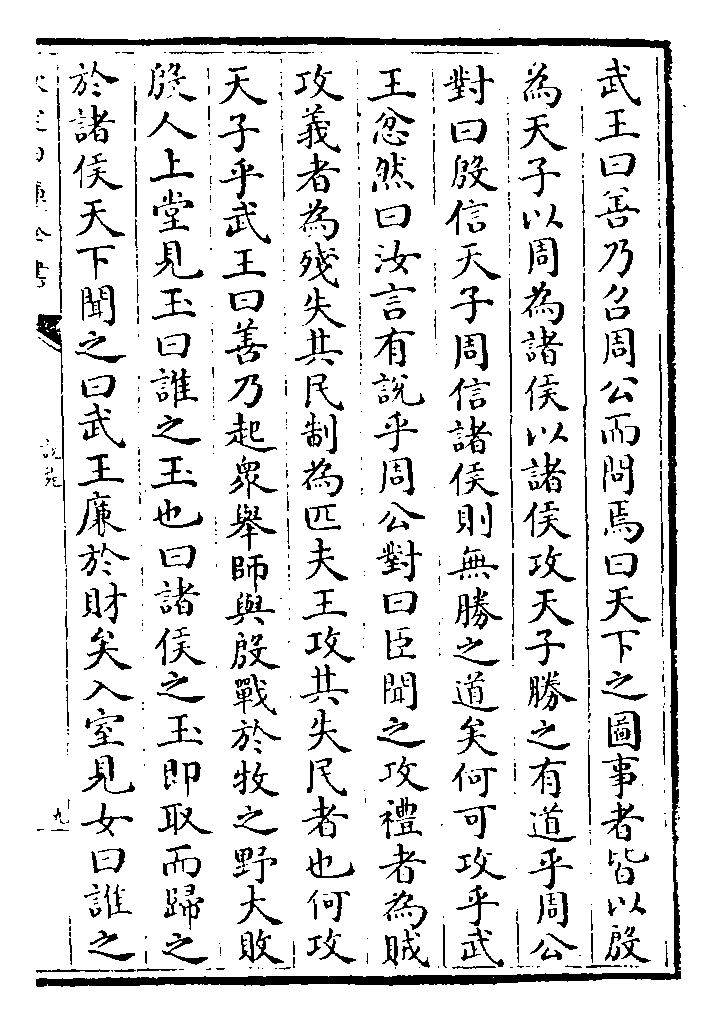 武王曰善乃召周公而問焉曰天下之圖事者皆以殷
為天子以周為諸侯以諸侯攻天子勝之有道乎周公
對曰殷信天子周信諸侯則無勝之道矣何可攻乎武
王忿然曰汝言有說乎周公對曰臣聞之攻禮者為賊
攻義者為殘失其民制為匹夫王攻其失民者也何攻
天子乎武王曰善乃起衆舉師與殷戰於牧之野大敗
殷人上堂見玉曰誰之玉也曰諸侯之玉即取而歸之
於諸侯天下聞之曰武王廉於財矣入室見女曰誰之
欽定四庫全書
說苑
九